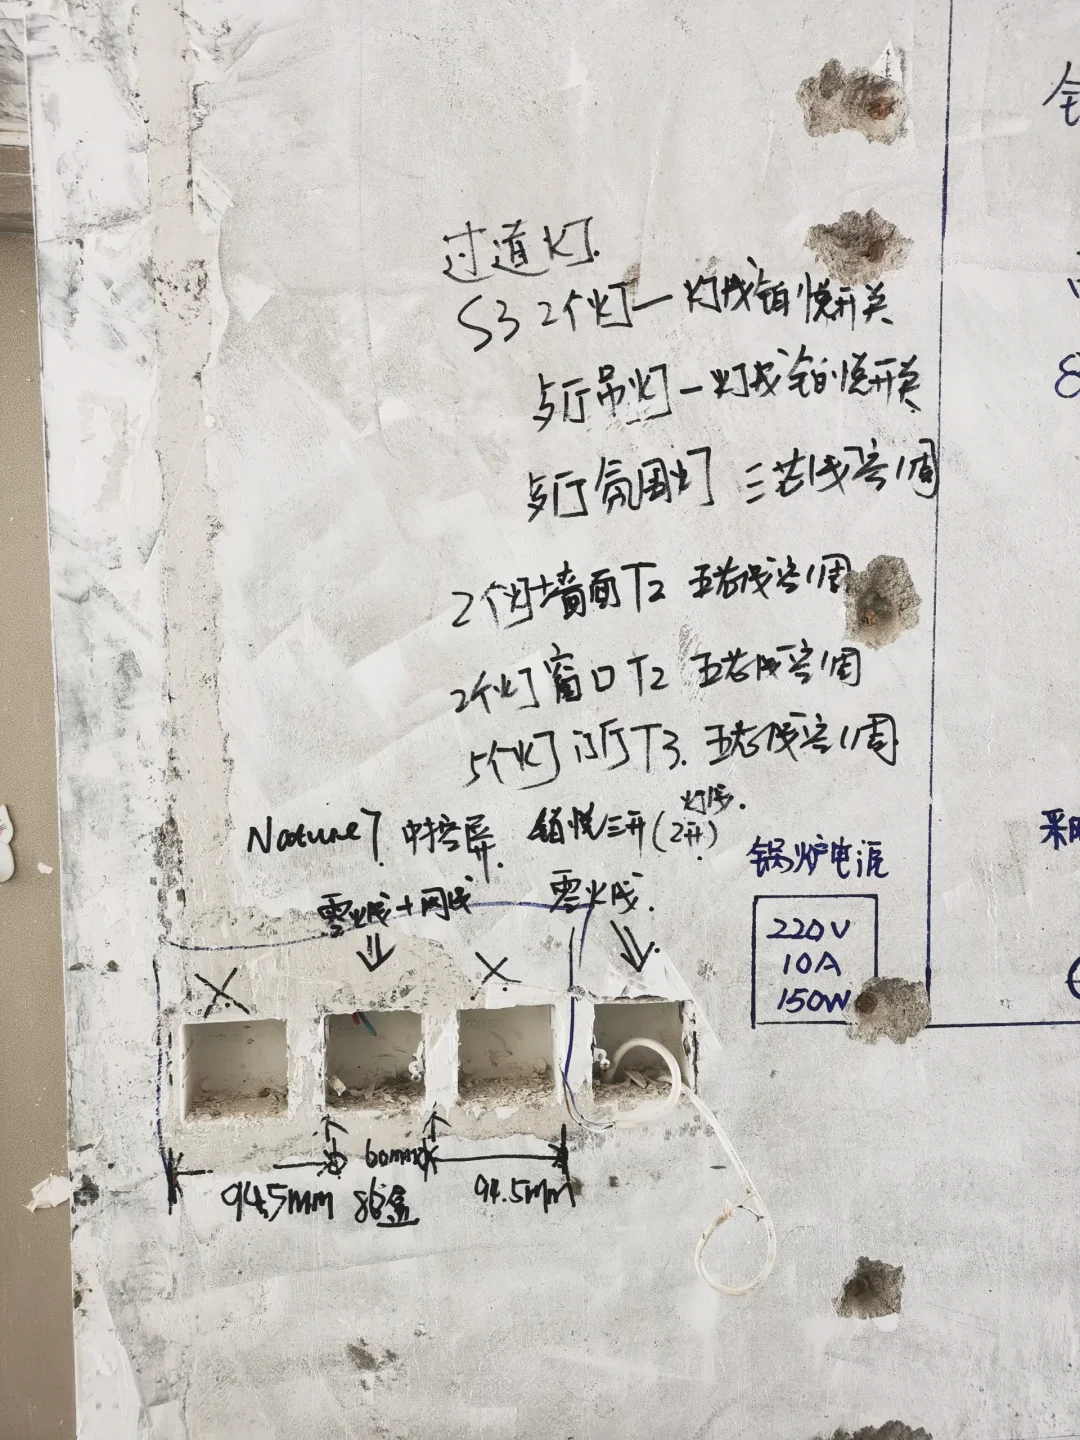 过道灯.
S3 2个灯一 灯线铂悦开关
与厅吊灯一灯线铂悦开关
与厅氛围灯 三芯线窄调
2个灯墙面T2 五芯线窄调
2个灯窗口T2 五芯线窄调
5个灯 门厅T3. 五芯线窄调
灯线.
Nature7 中控屏. 铂悦三开(2开).
零火线+网线
零火线.
锅炉电源
220V
10A
150W
94.5mm
60mm
86盒
94.5mm